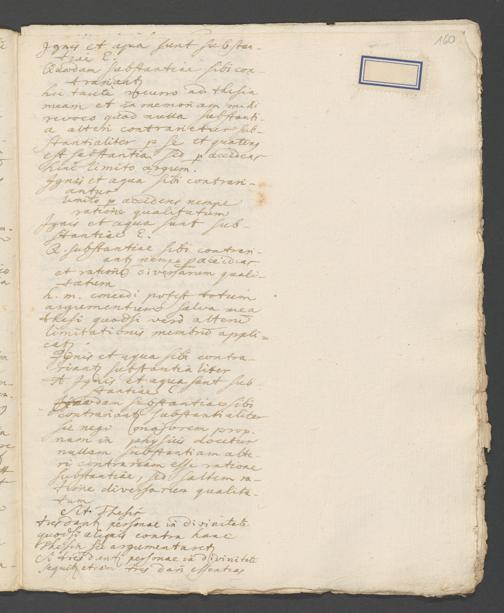 160
Ignis et aqua sunt substan-
tiae E.
Quaedam substantiae sibi con-
trariant
hic tacite recurro ad thesin
meam et in memoriam mihi
revoco quod nulla substanti-
a alteri contrarietur sub-
stantialiter per se et quatenus
est substantia sed per accidens
hinc limito argum.
Ignis et aqua sibi contrari-
antur
limito per accidens nempe
ratione qualitatum
Ignis et aqua sunt sub-
stantiae E.
Q substantiae sibi contrari-
ant nempe per accidens
et ratione diversarum quali-
tatum
h. m. concedi potest totum
argumentum salva mea
thesi quodsi vero alteri
limitationis membro appli-
cat:
Ignis et aqua sibi contra-
riant substantialiter
At Ignis et aqua sunt sub-
stantiae
Quaedam substantiae sibi
contrariant substantialiter
sic nego majorem prop.
nam in physicis docetur
nullam substantiam alte-
ri contrariam esse ratione
substantiae, sed saltem ra-
tione diversarum qualita-
tum
Sit Thesis
tres dant personae in divinitate
quodsi aliquis contra hanc
thesin sic argumentaret
Si tres dant personae in divinitate
sequit etiam tres dari essentias